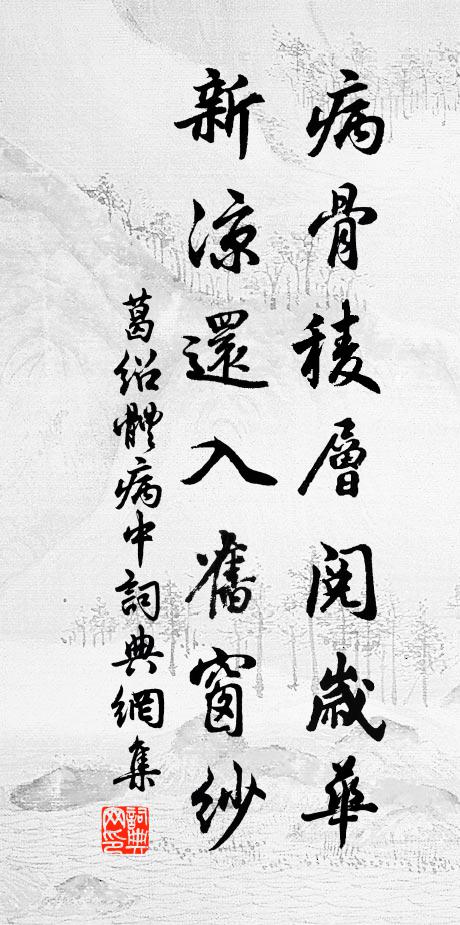 病骨稜層閱歲華
新涼還入舊窗紗
葛紹體病中詞典網集
詞典網印